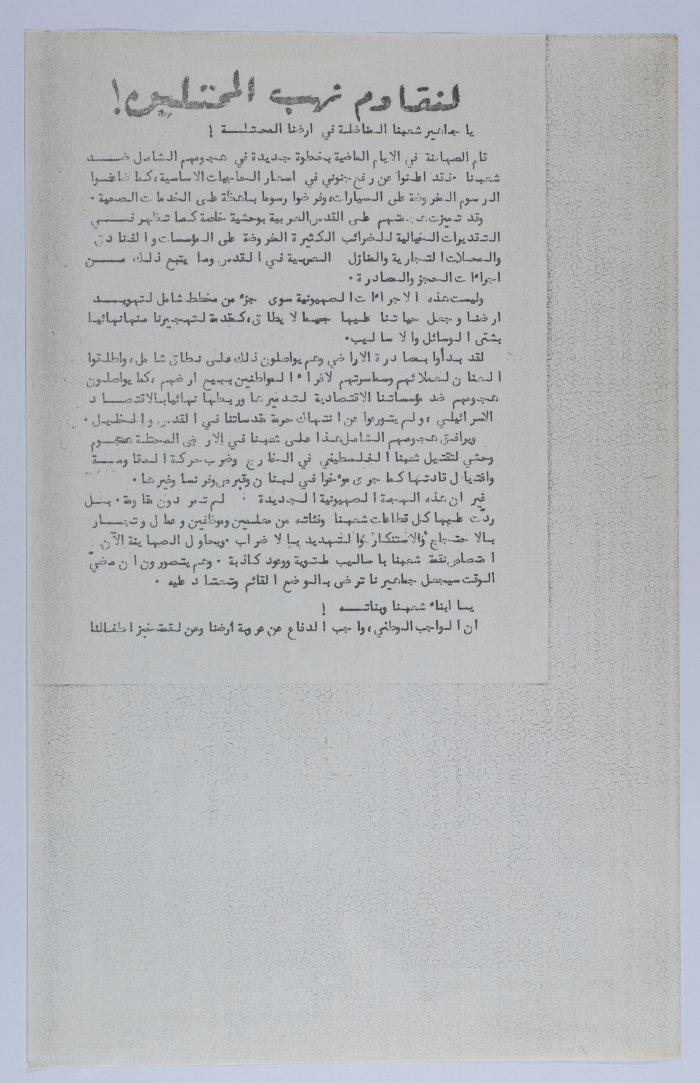 لنقاوم نهب المحتلين!
يا جماهير شعبنا المناضلة في ارضنا المحتلـــة !
قام الصهاينة في الايام الماضية بخطوة جديدة في هجومهم الشامل ضــد
شعبنا ٠ فقد اعلنوا عن رفع جنوني في اسعار الحاجيات الاساسية، كما ضاعفوا
الرسوم المفروضة على السيارات، وفرضوا رسوما باهظة على الخدمات الصحية ٠
وقد تميزت هجمتهم على القدس العربية بوحشية خاصة كما تظهر فــي
التقديرات الخيالية للضرائب الكثيرة المفروضة على المؤسسات والفنادق
والمحلات التجارية والمنازل العربية في القدس وما يتبع ذلك مــن
اجراءات الحجز والمصادرة ٠
وليست هذه الاجراءات الصهيونية سوى جزء من مخطط شامل لتهويــد
ارضنا وجعل حياتنا عليها جحيما لا يطاق، كمقدمة لتهجيرنا منها نهائيا
بشتى الوسائل والاساليب٠
لقد بدأوا بمصادرة الاراضي وهم يواصلون ذلك على نطاق شامل، واطلقوا
العنان لعملائهم وسماسرتهم لاغراء المواطنين ببيع ارضهم، كما يواصلون
هجومهم ضد مؤسساتنا الاقتصادية لتدميرها وربطها نهائيا بالاقتصــاد
الاسرائيلي، ولم يتورعوا عن انتهاك حرمة مقدساتنا في القدس والخليل ٠
ويرافق هجومهم الشامل هذا على شعبنا في الارض المحتلة هجــوم
وحشي لتقتيل شعبنا الفلسطيني في الخارج وضرب حركة المقاومــة
واغتيال قادتها كما جرى مؤخرا في لبنان وقبرص وفرنسا وغيرها ٠
غير ان هذه الهجمة الصهيونية الجديدة ٠ لم تمر دون مقاومة ٠ بــل
ردّت عليها كل قطاعات شعبنا وفئاته من معلمين وموظفين وعمال وتجــار
بالاحتجاج والاستنكار والتهديد بالاضراب ٠ ويحاول الصهاينة الآن
امتصاص نقمة شعبنا باساليب ملتوية ووعود كاذبة ٠ وهم يتصورون ان مضيّ
الوقت سيجعل جماهيرنا ترضى بالوضع القائم وتعتاد عليه ٠
يـا ابناء شعبنا وبناتــه !
ان الواجب الوطني، واجب الدفاع عن عروبة ارضنا وعن لقمة خبز اطفالنا